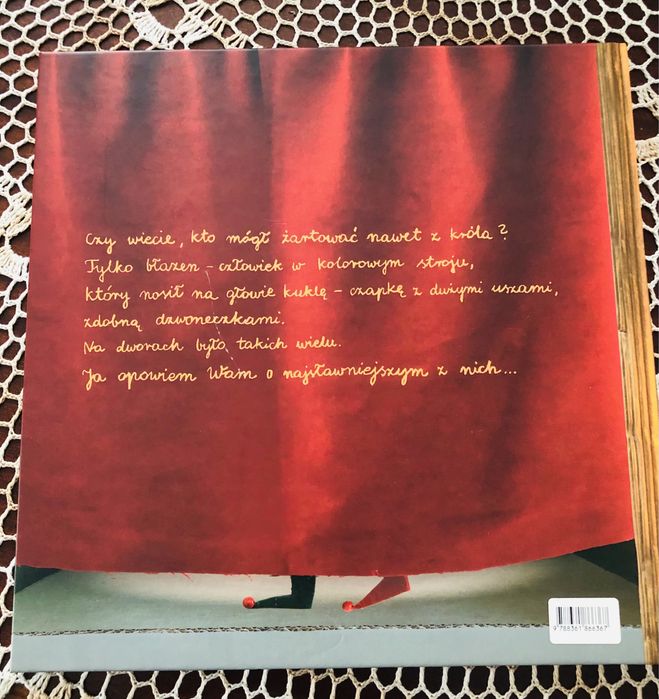 Czy wiecie, kto mógł żartować nawet z króla?
Tylko błazen – człowiek w kolorowym stroju,
który nosił na głowie kuklę – czapkę z dużymi uszami,
zdobną dzwoneczkami.
Na dworach było takich wielu.
Ja opowiem Wam o najsławniejszym z nich...
9788361866367